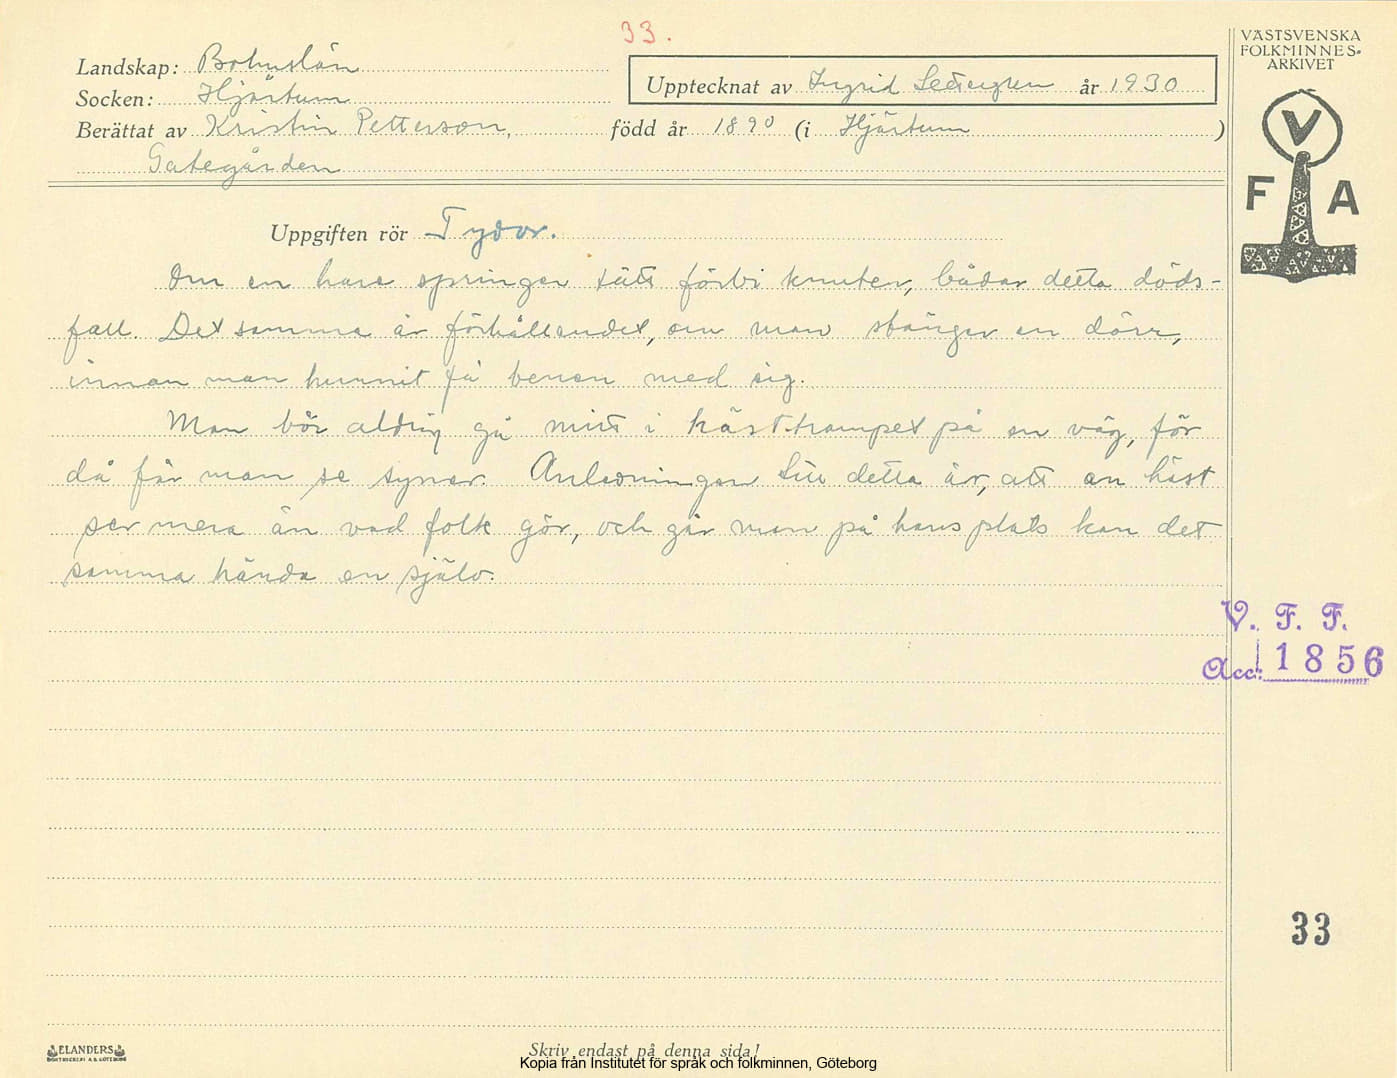 33.
VÄSTSVENSKA
FOLKMINNES-
ARKIVET
Landskap: Bohuslän
Upptecknat av Ingrid år 1930
Socken: Hjärtum
Berättat av Kristin Petterson, född år 1890 (i Hjärtum )
Gategården
V
F A
Uppgiften rör Tydor.
Om en hare springer tätt förbi knuten, bådar detta döds-
fall. Det samma är förhållandet, om man stänger en dörr,
innan man hunnit få benen med sig.
Man bör aldrig gå mitt i hästtrampet på en väg, för
då får man se syner. Anledningen till detta är, att en häst
ser mera än vad folk gör, och går man på hans plats kan det
samma hända en själv.
V. F. F.
Acc: 1856
33
ELANDERS
BOKTRYCKERI A.B. GÖTEBORG
Skriv endast på denna sida!
Kopia från Institutet för språk och folkminnen, Göteborg